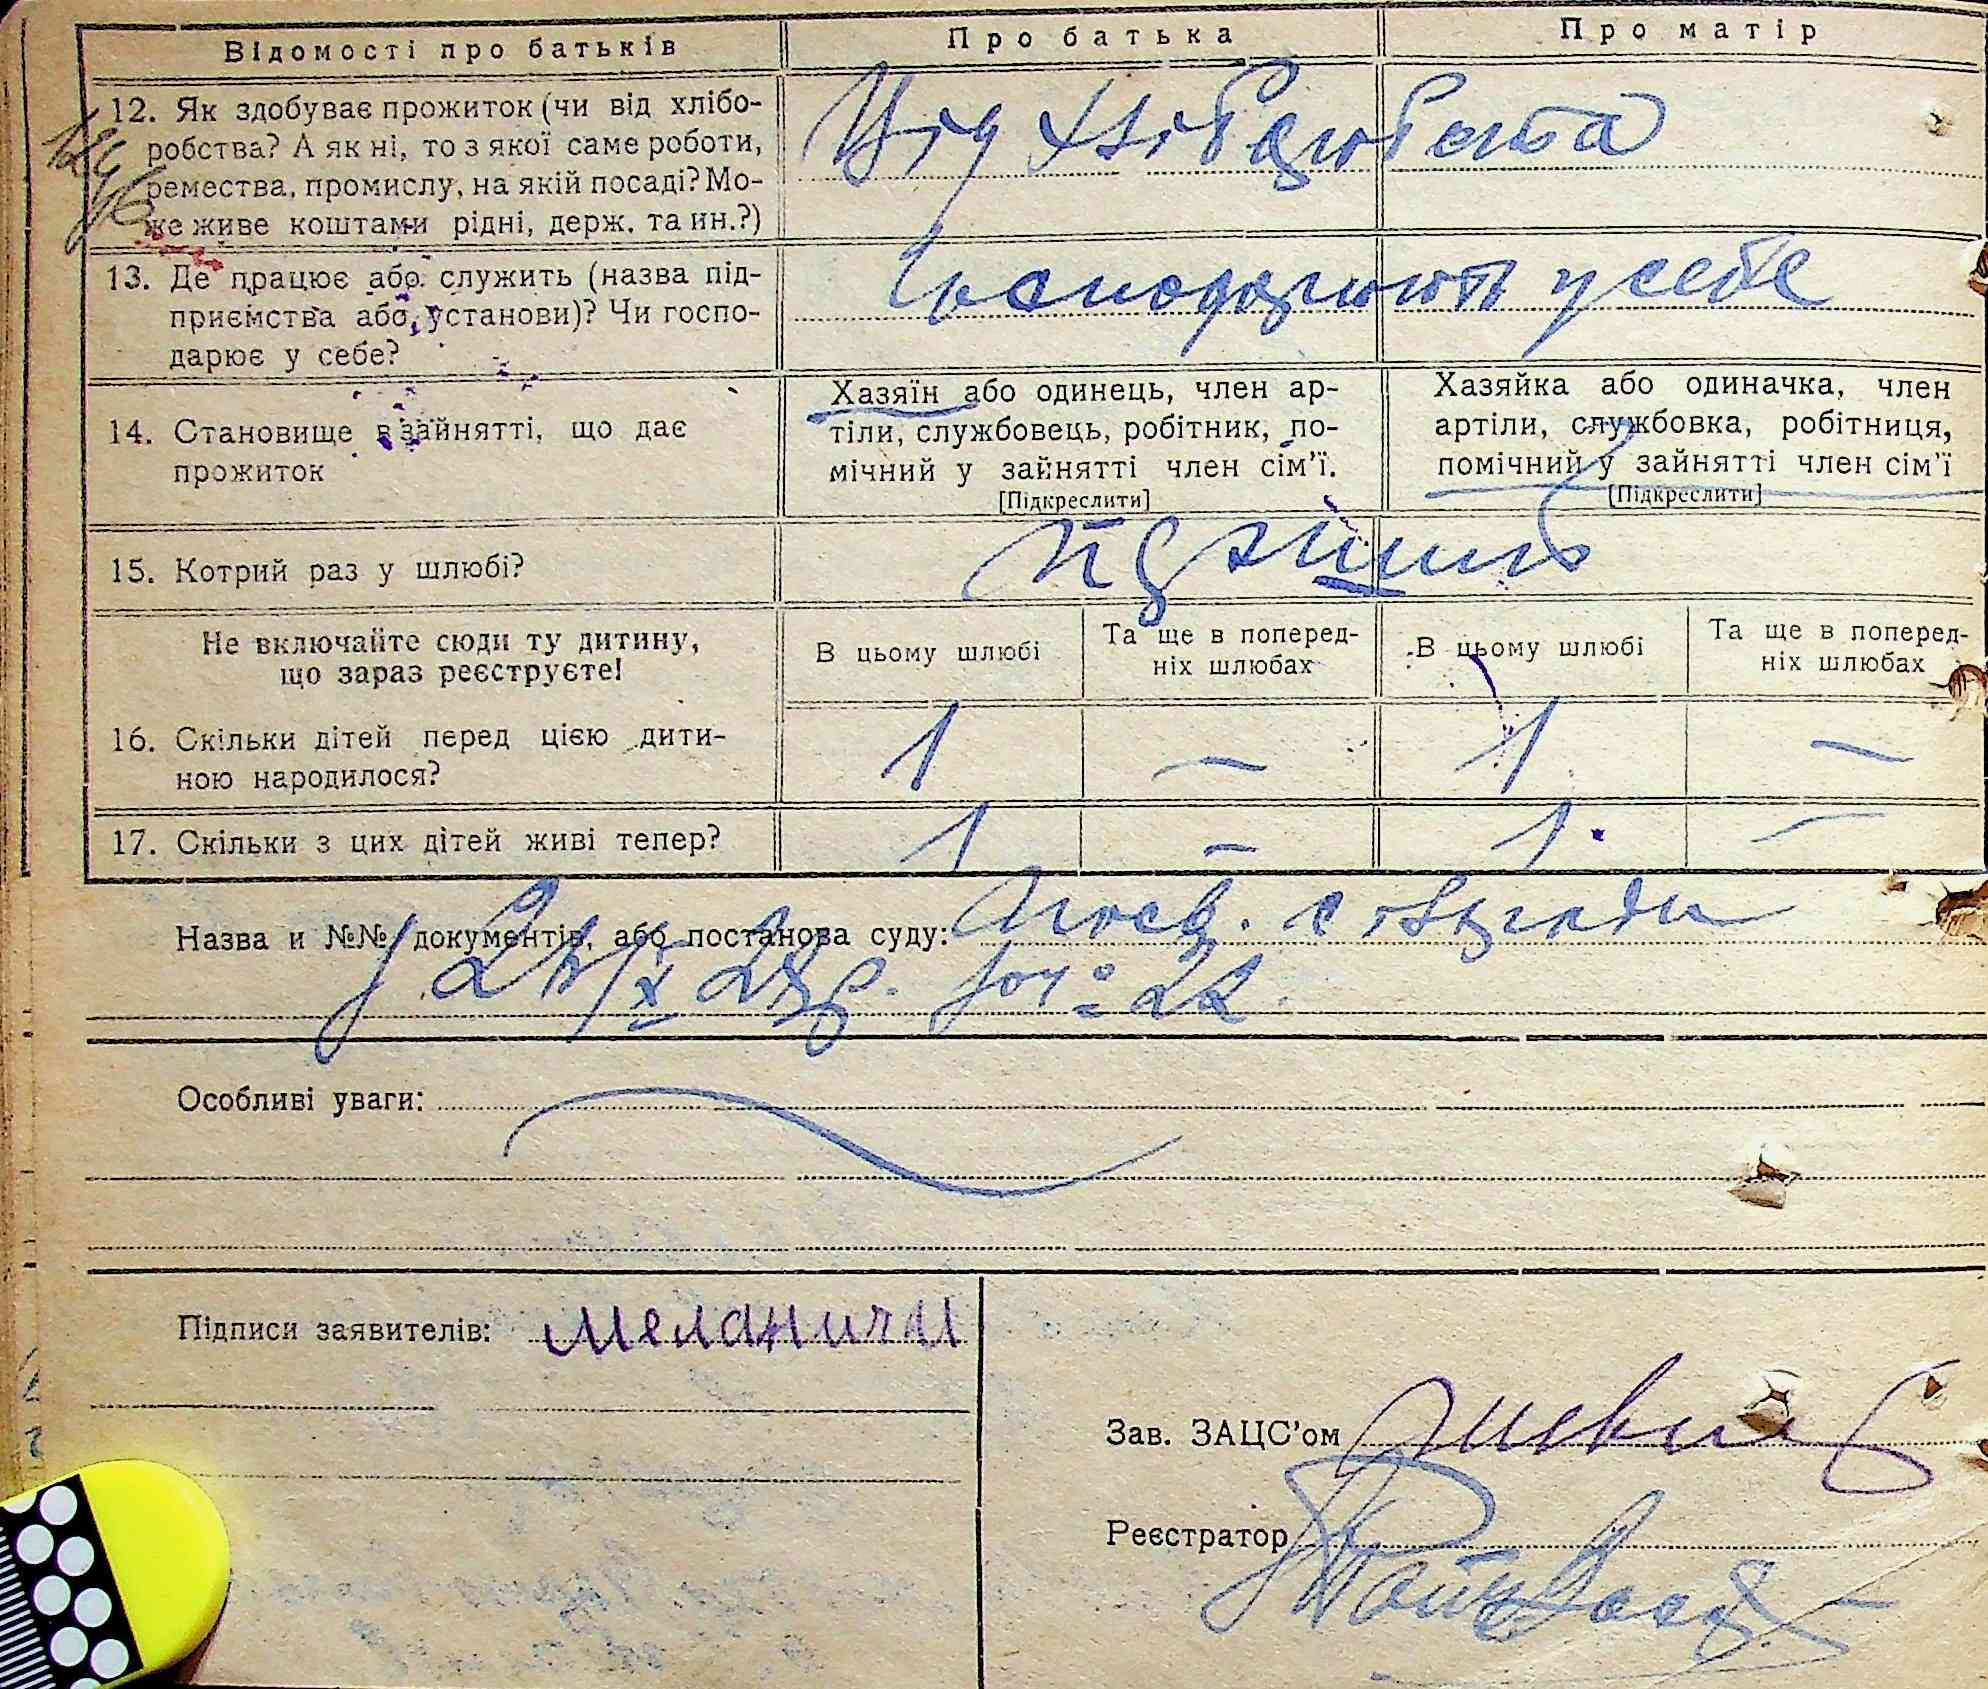 Відомості про батьків
Про батька
Про матір
12. Як здобуває прожиток (чи від хлібо-
робства? А як ні, то з якої саме роботи,
ремества, промислу, на якій посаді? Мо-
же живе коштами рідні, держ. та ин.?)
Від хліборобства
13. Де працює або служить (назва під-
приємства або установи)? Чи госпо-
дарює у себе?
Господарюють у себе
14. Становище в зайнятті, що дає
прожиток
Хазяїн або одинець, член ар-
тіли, службовець, робітник, по-
мічний у зайнятті член сім'ї.
[Підкреслити]
Хазяйка або одиначка, член
артіли, службовка, робітниця,
помічний у зайнятті член сім'ї
[Підкреслити]
15. Котрий раз у шлюбі?
Не включайте сюди ту дитину,
що зараз реєструєте!
В цьому шлюбі
Та ще в поперед-
ніх шлюбах
В цьому шлюбі
Та ще в поперед-
ніх шлюбах
16. Скільки дітей перед цією дити-
ною народилося?
1 — 1 —
17. Скільки з цих дітей живі тепер?
1 — 1 —
Назва и №№ документів, або постанова суду: Посв. с/ради
Особливі уваги:
Підписи заявителів:
Зав. ЗАЦС'ом
Реєстратор